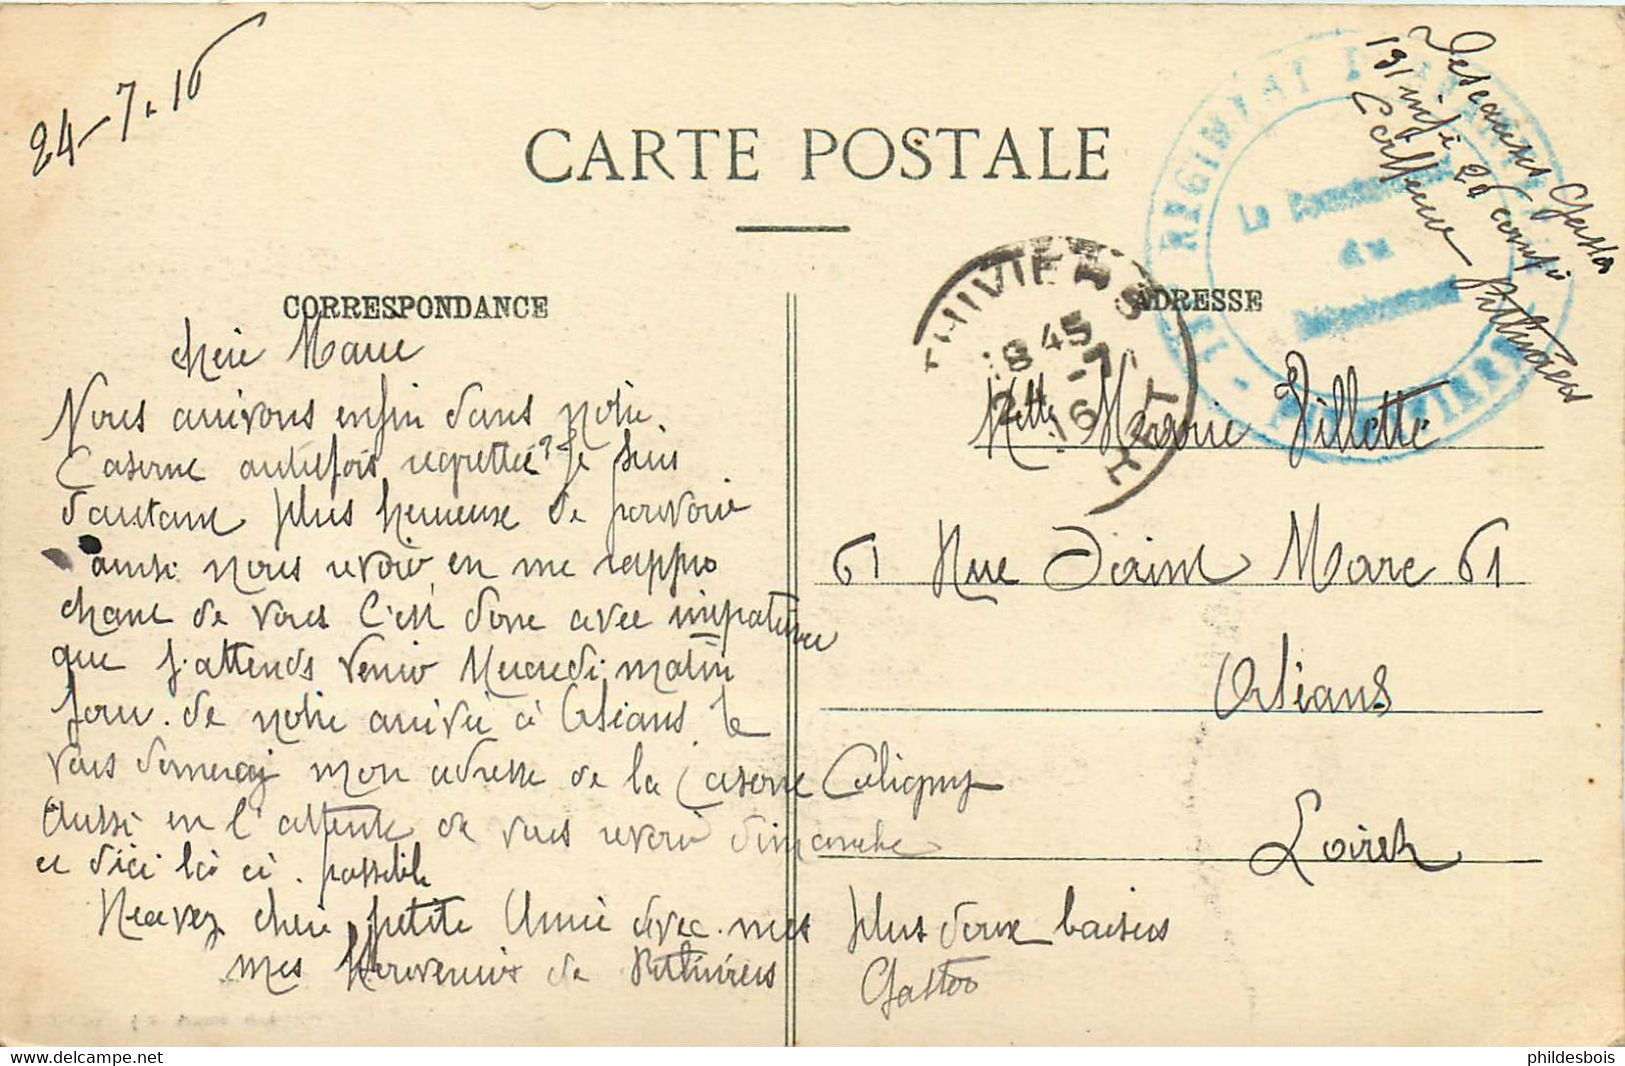 24-7-16
CARTE POSTALE
Gaston
131 infie 26 compie
Pithiviers
RÉGIMENT D'INFANTERIE
Le Commandant
du
PITHIVIERS
PITHIVIERS
18 45
24 -7
16
LOIRET
CORRESPONDANCE
ADRESSE
Chérie Marie
Nous arrivons enfin dans notre
Caserne autrefois regrettée? Je suis
d'autant plus heureuse de pouvoir
ainsi nous revoir en me rappro
chant de vous C'est donc avec impatience
que j'attends venir Mercredi matin
jour de notre arrivée à Orléans. Je
vous donnerai mon adresse de la Caserne Coligny
Aussi en l'attente de vous revoir dimanche
et d'ici là si possible
Recevez chérie petite Amie avec mes plus doux baisers
mes souvenirs de Pithiviers
Gaston
Melle Marie Villette
61 Rue Saint Marc 61
Orléans
Loiret
delcampe.net
phildesbois